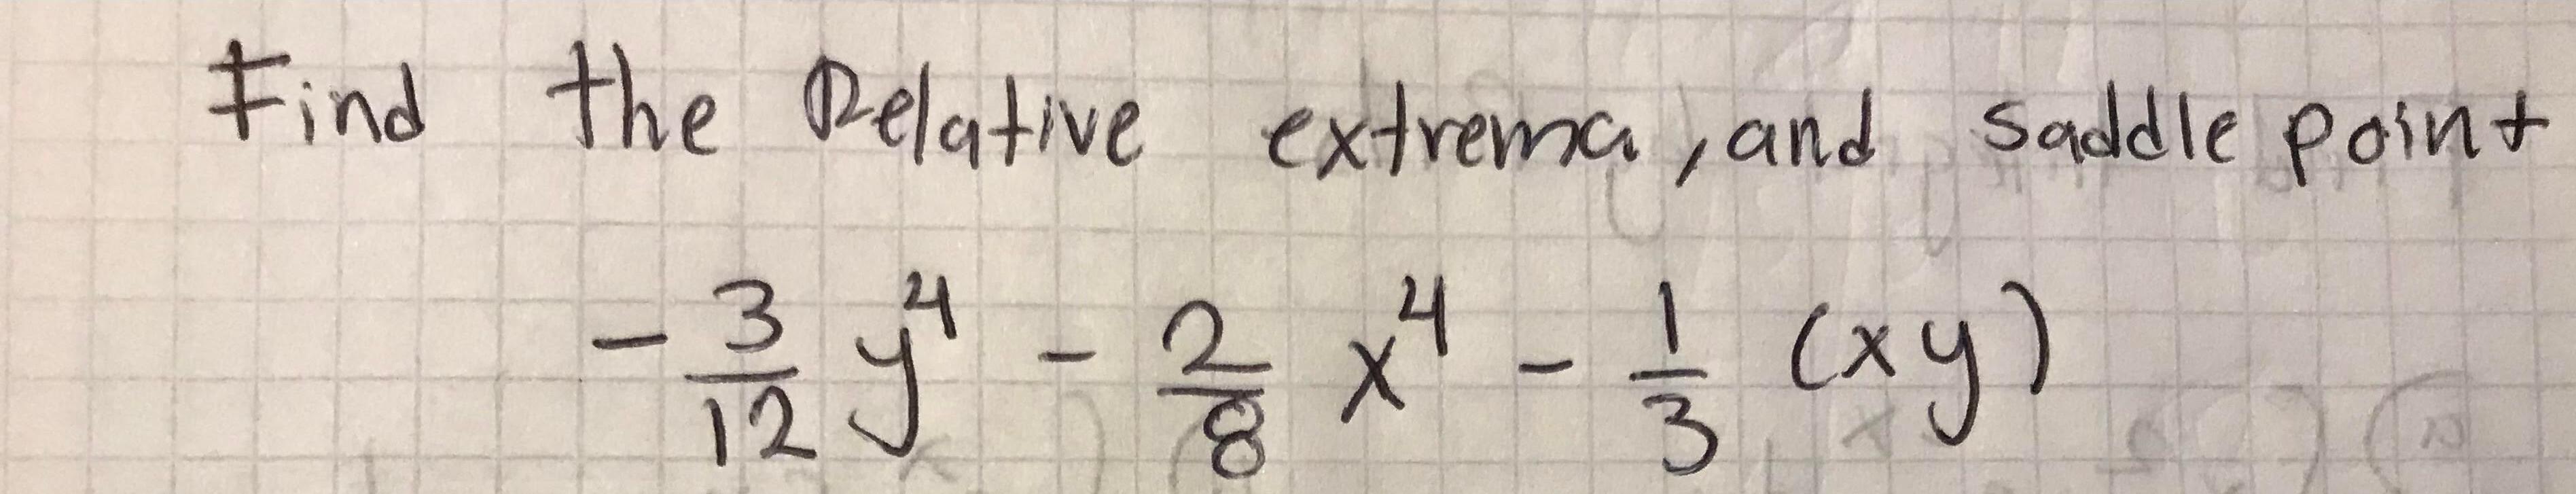 Find the Relative extrema, and saddle point
-3/12 y^4 - 2/8 x^4 - 1/3 (xy)